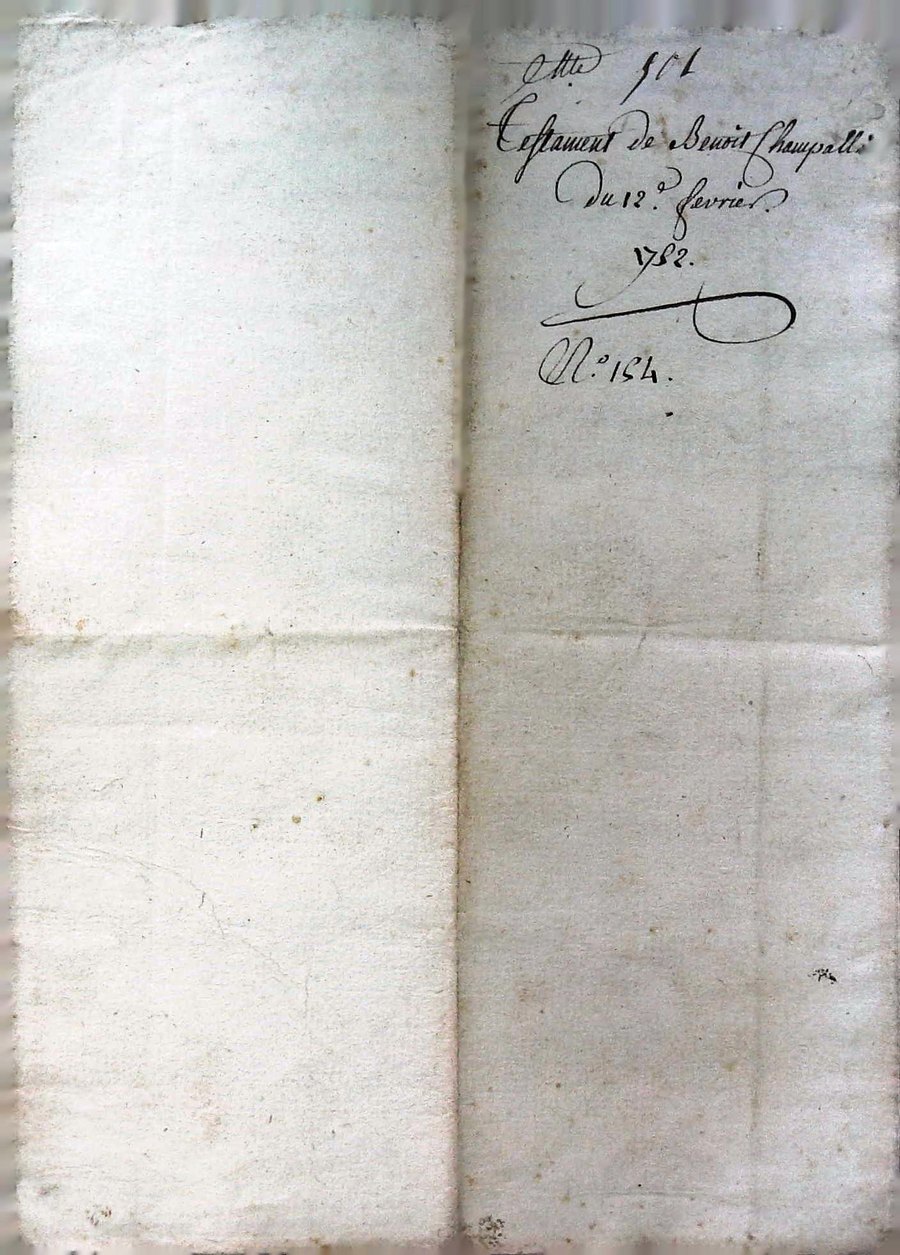 Testament de Benoit Champalle
du 12.e fevrier
1752.
N.o 154.